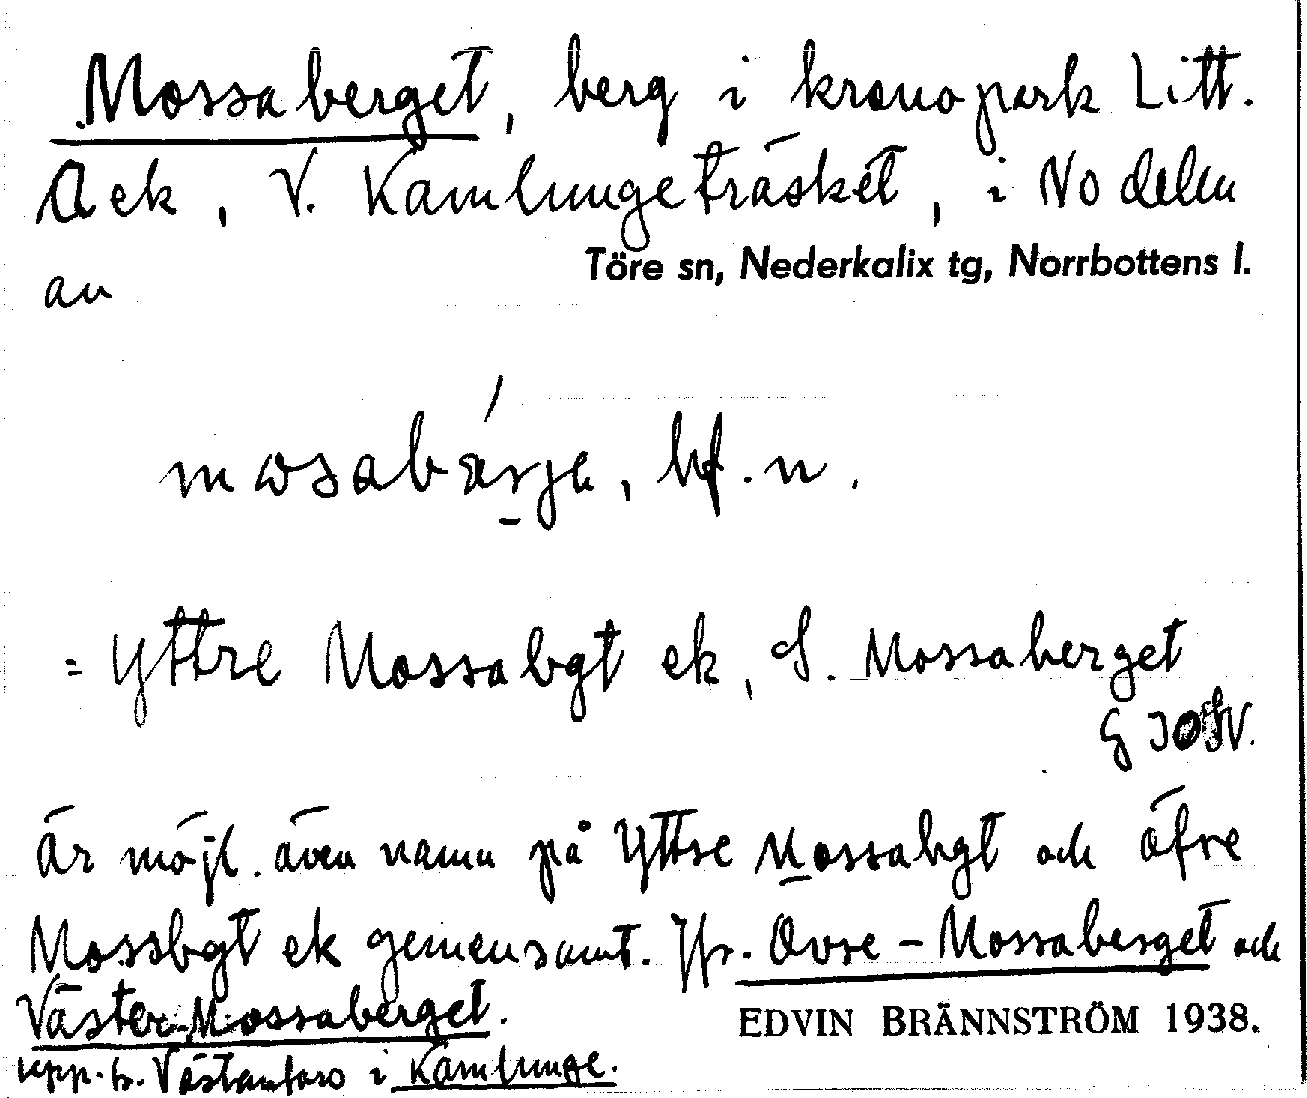 Mossaberget, berg i kronopark Litt.
A ek, V. Kamlungeträsket, i No delen
av
Töre sn, Nederkalix tg, Norrbottens l.
bf. n.
= Yttre Mossabgt ek, S. Mossaberget
är möjl. även namn på Yttre Mossabgt och öfre
Mossbgt ek gemensamt. Jfr. Övre-Mossaberget och
Väster-Mossaberget.
EDVIN BRÄNNSTRÖM 1938.
upp. fr. Västanfors i Kamlunge.